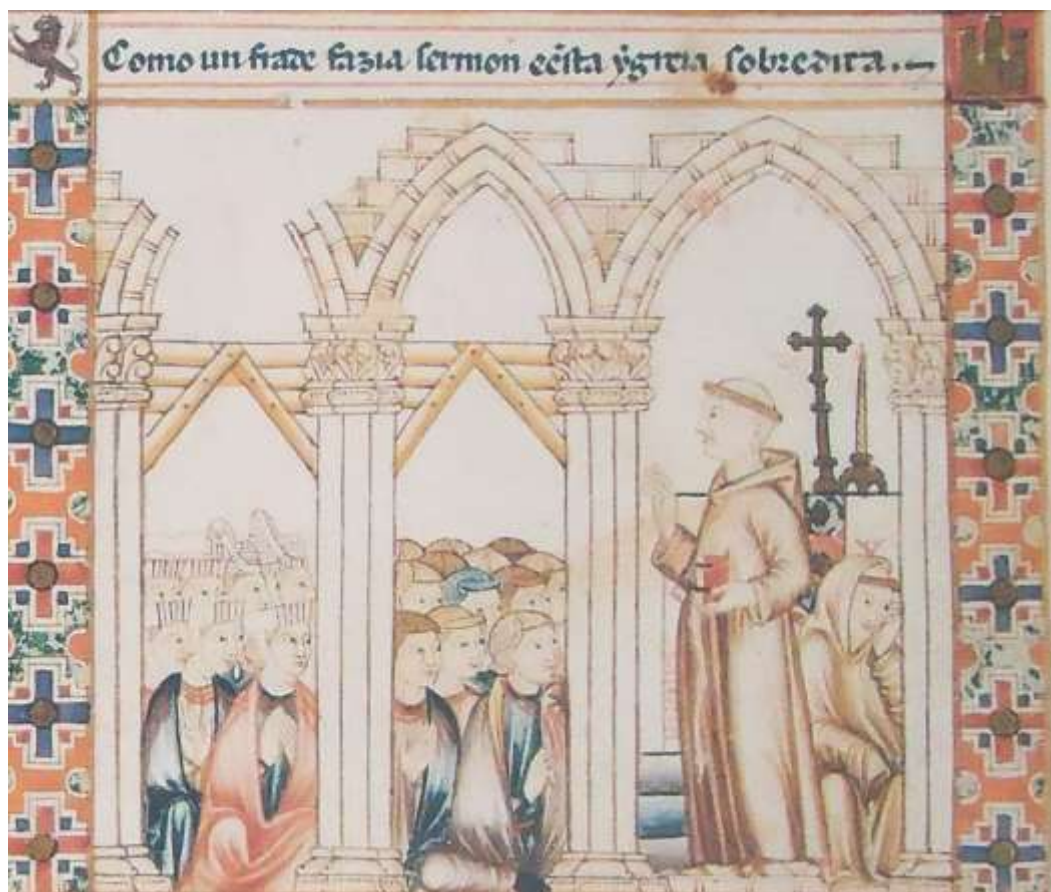 Como un frade fazia sermon eẽsta ẏgreia sobredita.—